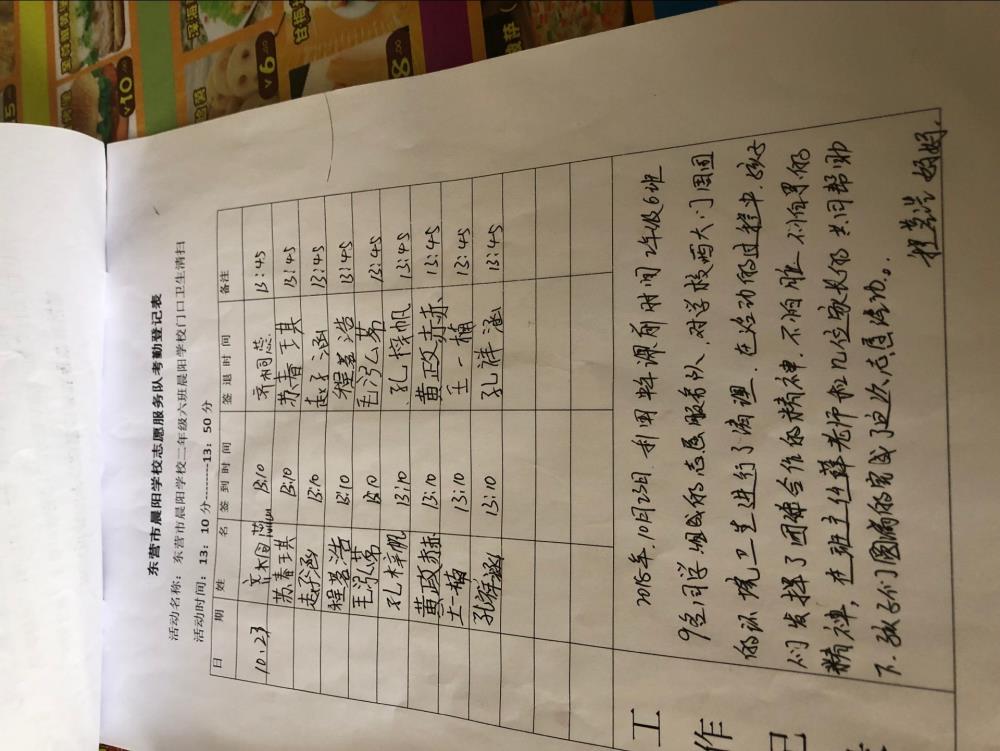 东营市晨阳学校志愿服务队考勤登记表
活动名称：东营市晨阳学校二年级六班晨阳学校门口卫生清扫
活动时间：13：10分--------13：50分
日 期 姓 名 签 到 时 间 签 退 时 间 备注
10.23 齐桐蕊 13:10 齐桐蕊 13:45
苏春琪 13:10 苏春琪 13:45
赵子涵 13:10 赵子涵 13:45
程茗浩 13:10 程茗浩 13:45
毛泓茗 13:10 毛泓茗 13:45
孔梓帆 13:10 孔梓帆 13:45
黄政赫 13:10 黄政赫 13:45
王一楠 13:10 王一楠 13:45
孔祥涵 13:10 孔祥涵 13:45
工作记
2018年.10月23日.利用 时间2年级6班
9名同学组成的志愿服务队.对学校两大门周围
的环境卫生进行了清理.在活动的过程中.孩子
们发挥了团结合作的精神.不怕脏 不怕累的
精神，在班主任薛老师和几位家长的共同帮助
下.孩子们圆满的完成了这次志愿活动。
程茗浩妈妈.
¥10.00
¥6.00
8.00